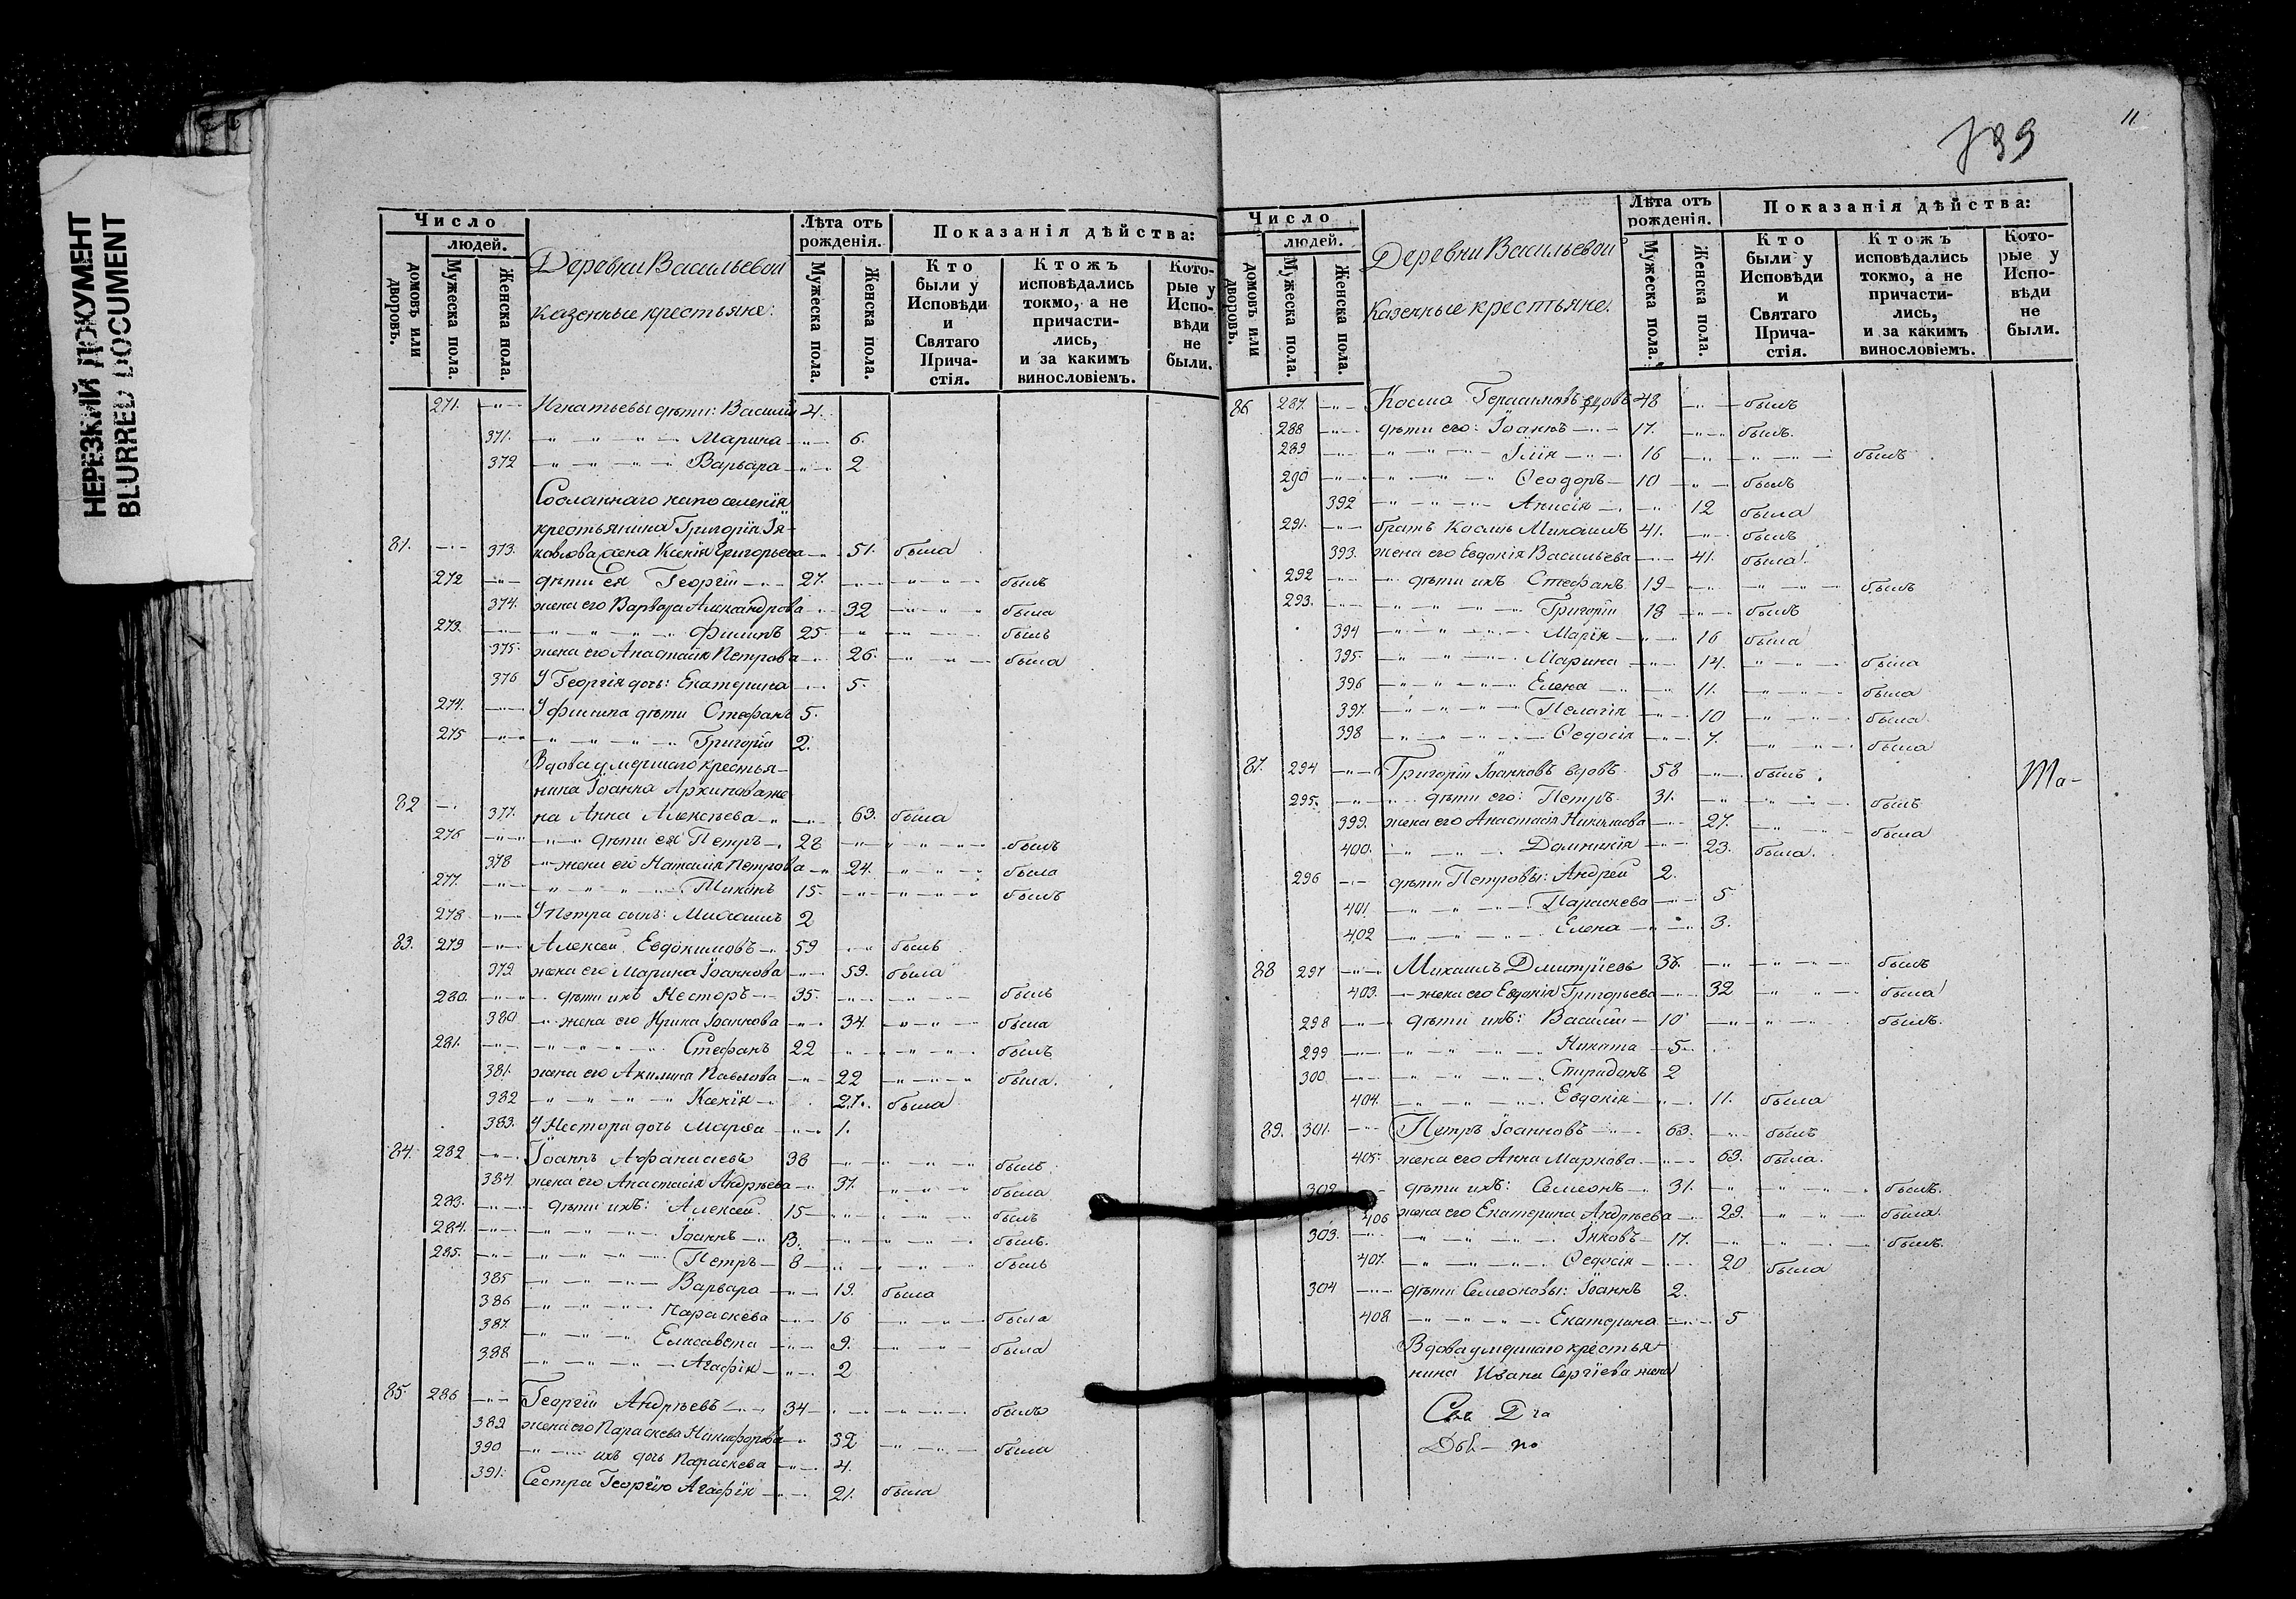 НЕРЕЗКИЙ ДОКУМЕНТ
BLURRED DOCUMENT
Число
людей.
домовъ или дворовъ.
Мужеска пола.
Женска пола.
Деревни Васильевой
казенные крестьяне:
Лѣта отъ рожденія.
Мужеска пола.
Женска пола.
Показанія дѣйства:
Кто были у Исповѣди и Святаго Причастія.
Ктожъ исповѣдались токмо, а не причастились, и за какимъ винословіемъ.
Которые у Исповѣди не были.
271. Игнатьевы дѣти: Василій 4.
371. Марина 6.
372 Варвара 2
Сосланнаго на поселенія
крестьянина Григорія Іа-
81. 373. ковлова жена Ксенія Григорьева 51. была
272 дѣти Ея Георгій 27. былъ
374. жена его Варвара Александрова 32 была
273. Филипъ 25. былъ
375. жена его Анастасія Петрова 26. была
376 У Георгія дочь: Екатерина 5.
274. У Филипа дѣти Стефанъ 5.
275 Григорій 2.
Вдова умершаго крестья-
нина Іоанна Архипова же
82 377. на Анна Алексѣева 63. была
276 дѣти ея Петръ 28 былъ
378 жена его Наталія Петрова 24. была
277. 15. былъ
278 У Петра сынъ: Михаилъ 2
83. 279 Алексѣй Евдокимовъ 59 былъ
379. жена его Марина Іоаннова 59. была
280. дѣти ихъ Несторъ 35. былъ
380 жена его Ирина Іоаннова 34. была
281. Стефанъ 22 былъ
381. жена его Акилина Павлова 22 была.
382 Ксенія 27. была
383. У Нестора дочь Марѳа 1.
84. 282 Іоаннъ Афанасіевъ 38 былъ
384 жена его Анастасія Андрѣева 37. была
283. дѣти ихъ: Алексѣй 15 былъ
284. Іоаннъ 13. былъ.
285. Петръ 8 былъ
385 Варвара 19. была
386 Параскева 16 была
387. Елисавета 9. была
388 Агафія 2
85. 286 Георгій Андрѣевъ 34 былъ
389 жена его Параскева Никифорова 32 была
390 ихъ дочь Параскева 4.
391. Сестра Георгію Агафія 21. была
739
11
Число
людей.
домовъ или дворовъ.
Мужеска пола.
Женска пола.
Деревни Васильевой
Казенные крестьяне.
Лѣта отъ рожденія.
Мужеска пола.
Женска пола.
Показанія дѣйства:
Кто были у Исповѣди и Святаго Причастія.
Ктожъ исповѣдались токмо, а не причастились, и за какимъ винословіемъ.
Которые у Исповѣди не были.
86 287. Косма Герасимовъ вдовъ 48 былъ
288 дѣти его: Іоаннъ 17. былъ.
289 Илія 16 былъ
290 Ѳеодоръ 10 былъ
392 Анисія 12 была
291. братъ Космы Михаилъ 41. былъ
393. жена его Евдокія Васильева 41. была.
292 дѣти ихъ Стефанъ 19 былъ
293. Григорій 18 былъ
394 Марія 16 была
395. Марина 14. была
396 Елена 11. была
397. Пелагія 10 была
398 Ѳедосія 7. была
87. 294 Григорій Іоанновъ вдовъ 58 былъ.
Ма-
295. дѣти его: Петръ 31. былъ
399. жена его Анастасія Николаева 27. была
400. Домникія 23. была.
296 дѣти Петровы: Андрей 2.
401. Параскева 5
402 Елена 3.
88 297 Михаилъ Дмитріевъ 36. былъ
403. жена его Евдокія Григорьева 32 была
298 дѣти ихъ: Василій 10 былъ.
299 Никита 5
300 Спиридонъ 2
404. Евдокія 11. была
89. 301. Петръ Іоанновъ 63. былъ
405. жена его Анна Маркова 63. была.
302 дѣти ихъ: Симеонъ 31. былъ.
406 жена его Екатерина Андрѣева 29. была.
303. Іяковъ 17. былъ.
407. Ѳедосія 20 была
304 дѣти Симеоновы: Іоаннъ 2.
408 Екатерина 5
Вдова умершаго крестья-
нина Ивана Сергіева жена